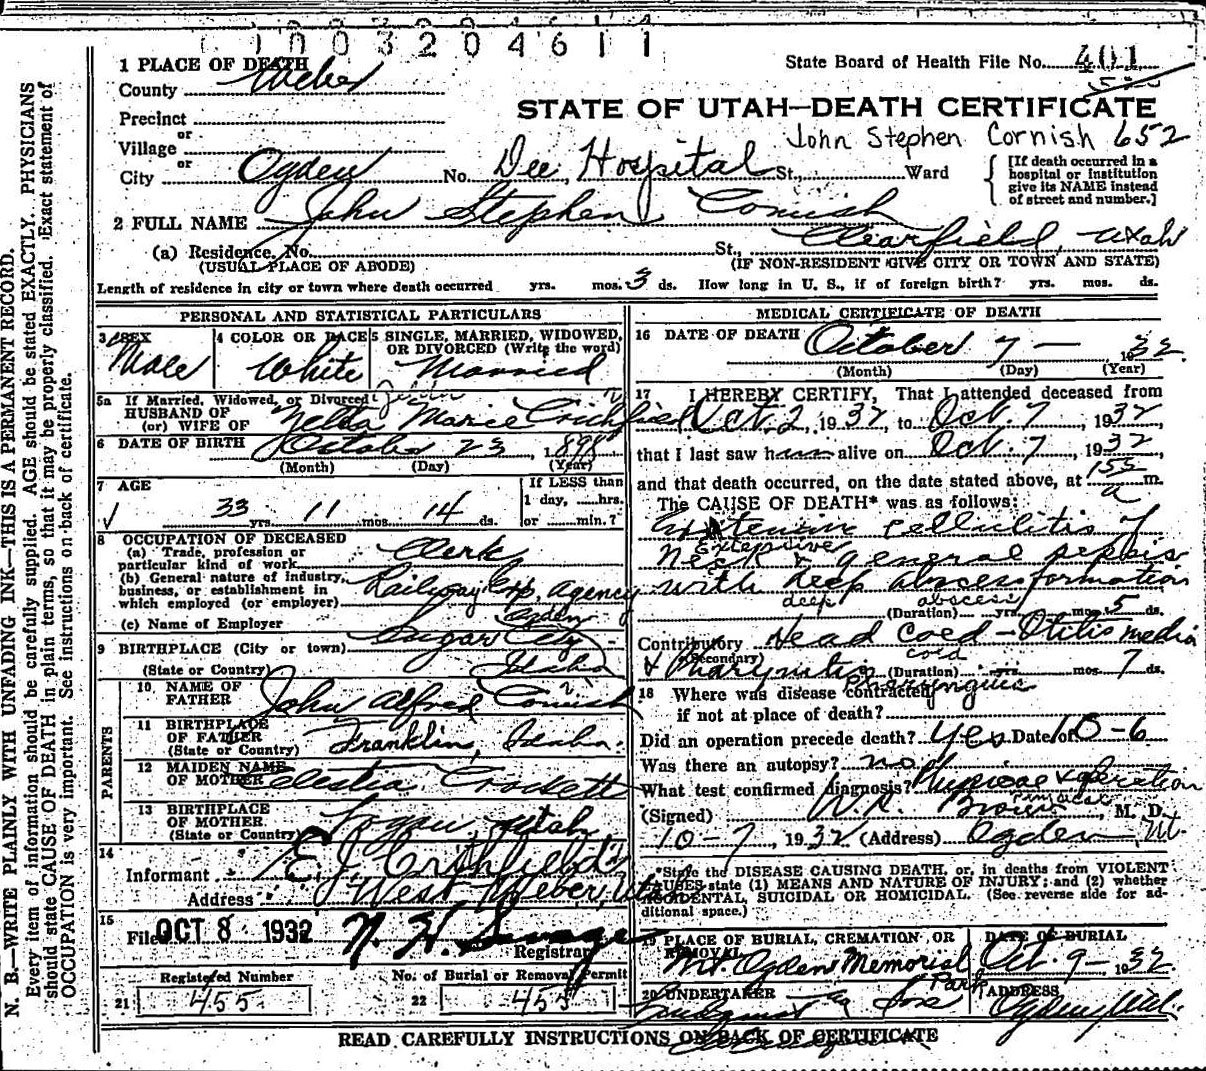 1003204611
State Board of Health File No. 401
1 PLACE OF DEATH
County Weber
STATE OF UTAH—DEATH CERTIFICATE
Precinct
or
Village
John Stephen Cornish 652
or
City Ogden No. Dee Hospital St., Ward
[If death occurred in a hospital or institution give its NAME instead of street and number.]
2 FULL NAME John Stephen Cornish
(a) Residence. No. St., Clearfield, Utah
(USUAL PLACE OF ABODE) (IF NON-RESIDENT GIVE CITY OR TOWN AND STATE)
Length of residence in city or town where death occurred yrs. mos. 3 ds. How long in U. S., if of foreign birth? yrs. mos. ds.
PERSONAL AND STATISTICAL PARTICULARS
3 SEX Male
4 COLOR OR RACE White
5 SINGLE, MARRIED, WIDOWED, OR DIVORCED (Write the word) Married
5a If Married, Widowed, or Divorced
HUSBAND OF
(or) WIFE OF Nelda Marie Crichfield
6 DATE OF BIRTH October 23, 1898
(Month) (Day) (Year)
7 AGE
33 yrs. 11 mos. 14 ds.
If LESS than 1 day, hrs. or min.?
8 OCCUPATION OF DECEASED
(a) Trade, profession or particular kind of work Clerk
(b) General nature of industry, business, or establishment in which employed (or employer) Railway Exp. Agency
(c) Name of Employer Ogden
9 BIRTHPLACE (City or town) Sugar City
(State or Country) Idaho
PARENTS
10 NAME OF FATHER John Alfred Cornish
11 BIRTHPLACE OF FATHER (State or Country) Franklin, Idaho.
12 MAIDEN NAME OF MOTHER Celestia Crockett
13 BIRTHPLACE OF MOTHER. (State or Country) Logan Utah
14
Informant E J Crithfield
Address West Weber, Utah
15
Filed OCT 8 1932 N. H. Savage
Registrar
Registered Number
21 455
No. of Burial or Removal Permit
22 455
MEDICAL CERTIFICATE OF DEATH
16 DATE OF DEATH October 7 — 1932.
(Month) (Day) (Year)
17 I HEREBY CERTIFY, That I attended deceased from
Oct. 2 1932, to Oct. 7, 1932
that I last saw him alive on Oct. 7, 1932,
and that death occurred, on the date stated above, at 155 a m.
The CAUSE OF DEATH* was as follows:
Extensive cellulitis of
Extensive
neck & general sepsis
with deep abscess formation
deep abscess
(Duration) yrs. mos. 5 ds.
Contributory Head cold — Otitis media
cold
(Secondary)
& Pharyngitis (Duration) yrs. mos. 7 ds.
Pharyngitis
18 Where was disease contracted
if not at place of death?
Did an operation precede death? yes Date of 10-6
Was there an autopsy? no
What test confirmed diagnosis? Physical & operation
Physical
(Signed) W. R. Brown, M. D.
10-7, 1932 (Address) Ogden, Ut
*State the DISEASE CAUSING DEATH, or, in deaths from VIOLENT
CAUSES state (1) MEANS AND NATURE OF INJURY; and (2) whether
ACCIDENTAL, SUICIDAL OR HOMICIDAL. (See reverse side for additional space.)
19 PLACE OF BURIAL, CREMATION OR REMOVAL
Mt. Ogden Memorial Park
DATE OF BURIAL
Oct. 9 - 1932.
20 UNDERTAKER
Lindquist & Sons
ADDRESS
Ogden, Utah.
READ CAREFULLY INSTRUCTIONS ON BACK OF CERTIFICATE
N. B.—WRITE PLAINLY WITH UNFADING INK—THIS IS A PERMANENT RECORD.
Every item of information should be carefully supplied. AGE should be stated EXACTLY. PHYSICIANS
should state CAUSE OF DEATH in plain terms, so that it may be properly classified. Exact statement of
OCCUPATION is very important. See instructions on back of certificate.